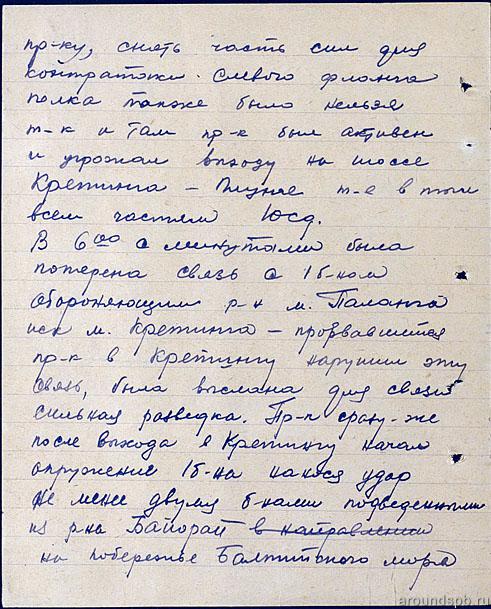 пр-ку, снять часть сил для
контратаки с левого фланга
полка также было нельзя
т-к и там пр-к был активен
и угрожал выходу на шоссе
Кретинга – Плунге т-е в тыл
всем частям 10сд.
В 6 00 с минутами была
потерена связь с 1б-ном
обороняющим р-н м. Паланга
иск м. Кретинга – прорвавшийся
пр-к в Кретингу нарушил эту
связь, была выслана для связи
сильная разведка. Пр-к сразу-же
после выхода в Кретингу начал
окружение 1б-на нанося удар
не менее двумя б-нами подведенными
из р-на Байорай в направлении
на побережье Балтийского моря
aroundspb.ru